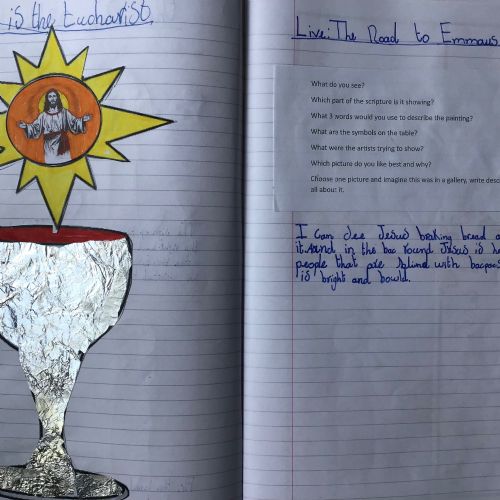 is the Eucharist.
Live: The Road to Emmaus
What do you see?
Which part of the scripture is it showing?
What 3 words would you use to describe the painting?
What are the symbols on the table?
What were the artists trying to show?
Which picture do you like best and why?
Choose one picture and imagine this was in a gallery, write desc
all about it.
I can see Jesus breking bread a
it. And in the bac round Jesus is
people that are with
is bright and